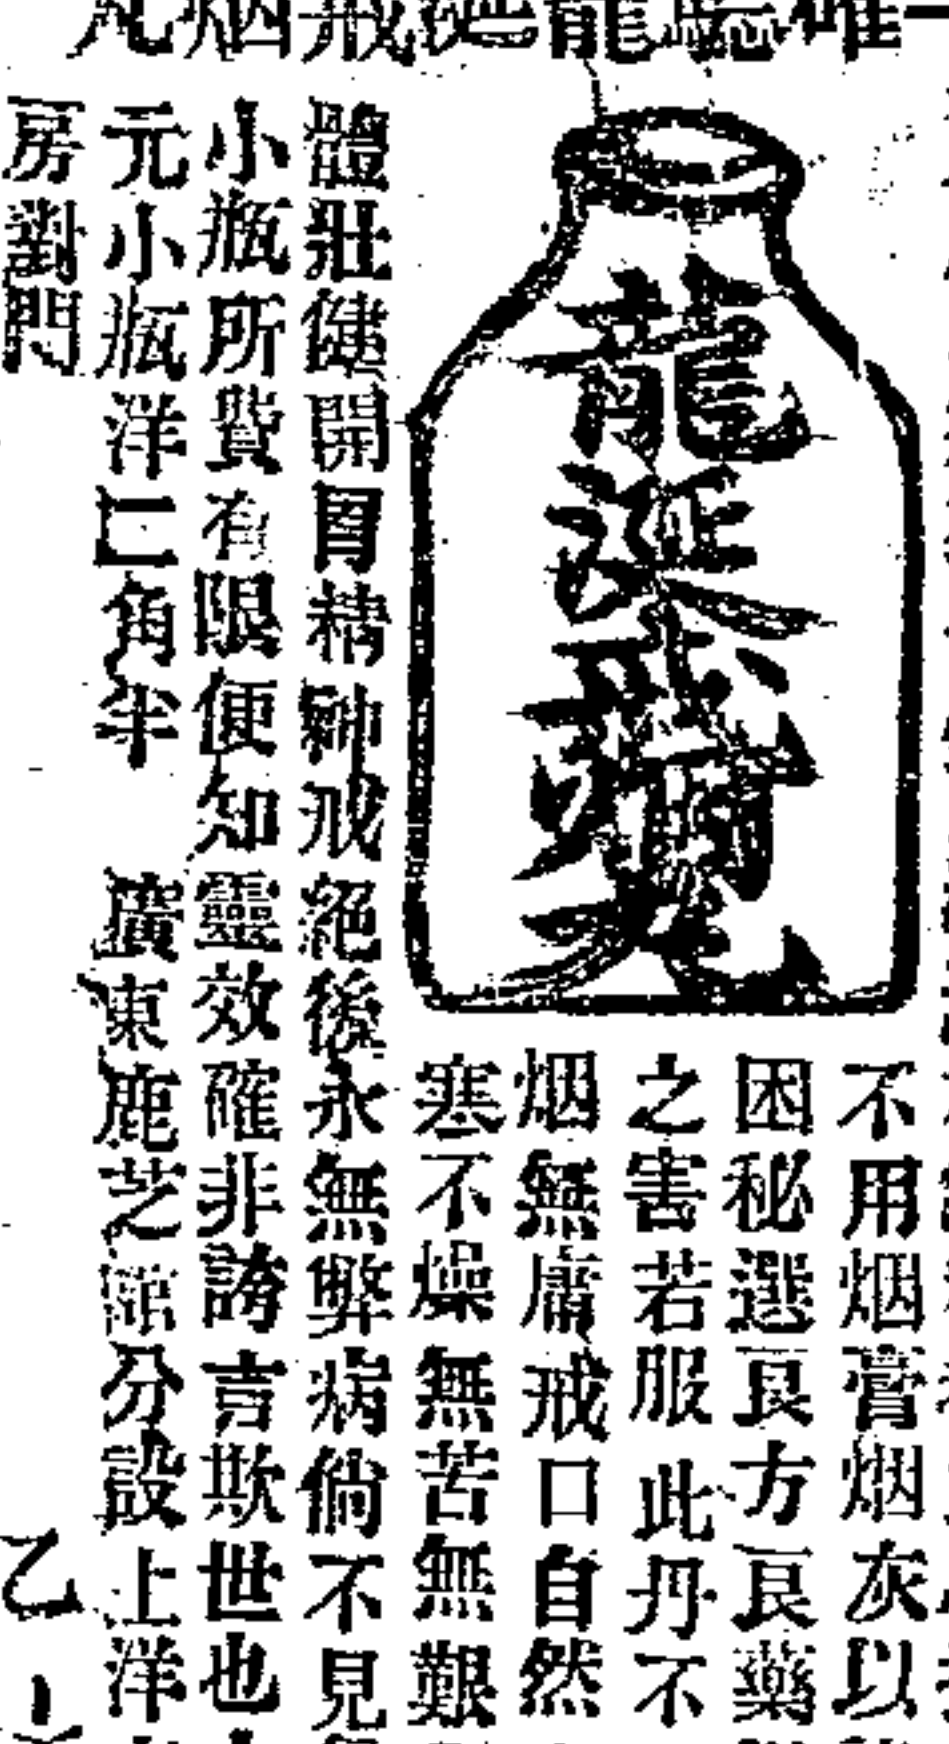 聽龍涎戒烟
龍涎戒煙丸
不用烟膏烟灰以
困秘選良方良藥
之害若服此丹不
烟無庸戒口自然
寒不燥無苦無艱
體壯健開胃精神戒絕後永無弊病倘不見
小瓶所費有限便知靈效確非誇言欺世也
元小瓶洋二角半 廣東鹿芝館分設上洋
房對門